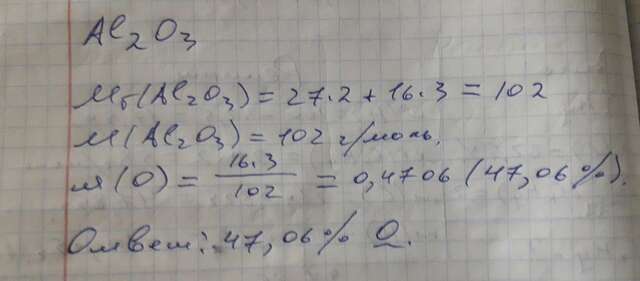 Al₂O₃
Mr(Al₂O₃) = 27·2 + 16·3 = 102
M(Al₂O₃) = 102 г/моль.
м(O) = 16·3 / 102 = 0,4706 (47,06%).
Ответ: 47,06% O.